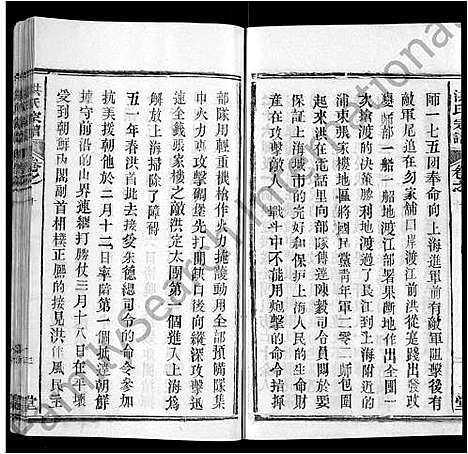 洪氏宗譜
師一七五团奉命向上海進軍前有敵軍阻擊後有
敵軍尼追在勿家舖口岸渡江前洪從定踐出發政
一船一船地渡江部署果斷地作出全團一
大搶渡的决策勝利地渡過了長江到上海附近的
浦東張家樓地區將國民黨青年軍二〇二師包圍
起來洪定太用電話里向部隊傳達陳毅司令員關於要
上海城市的完好和保护上海人民的生命財
戰斗中不能用炮擊的命令
堂
洪氏宗譜
部隊用輕重機槍作火力掩護動用全部預備隊集
中火力專攻擊碉堡先打開缺口後向縱深攻擊迅
速全錢張家樓之敵洪定太團第一個進入上海爲
解放上海掃除了障碍
五一年春洪首批去接受朱德總司令的命令参加
抗美援朝他於二月十二日第一個抵達朝鮮
守前沿的山界連續打勝仗三月十八日在平壤
受到朝鮮内閣副首相樸正愛的接見洪作風民主
堂
Familysearch International